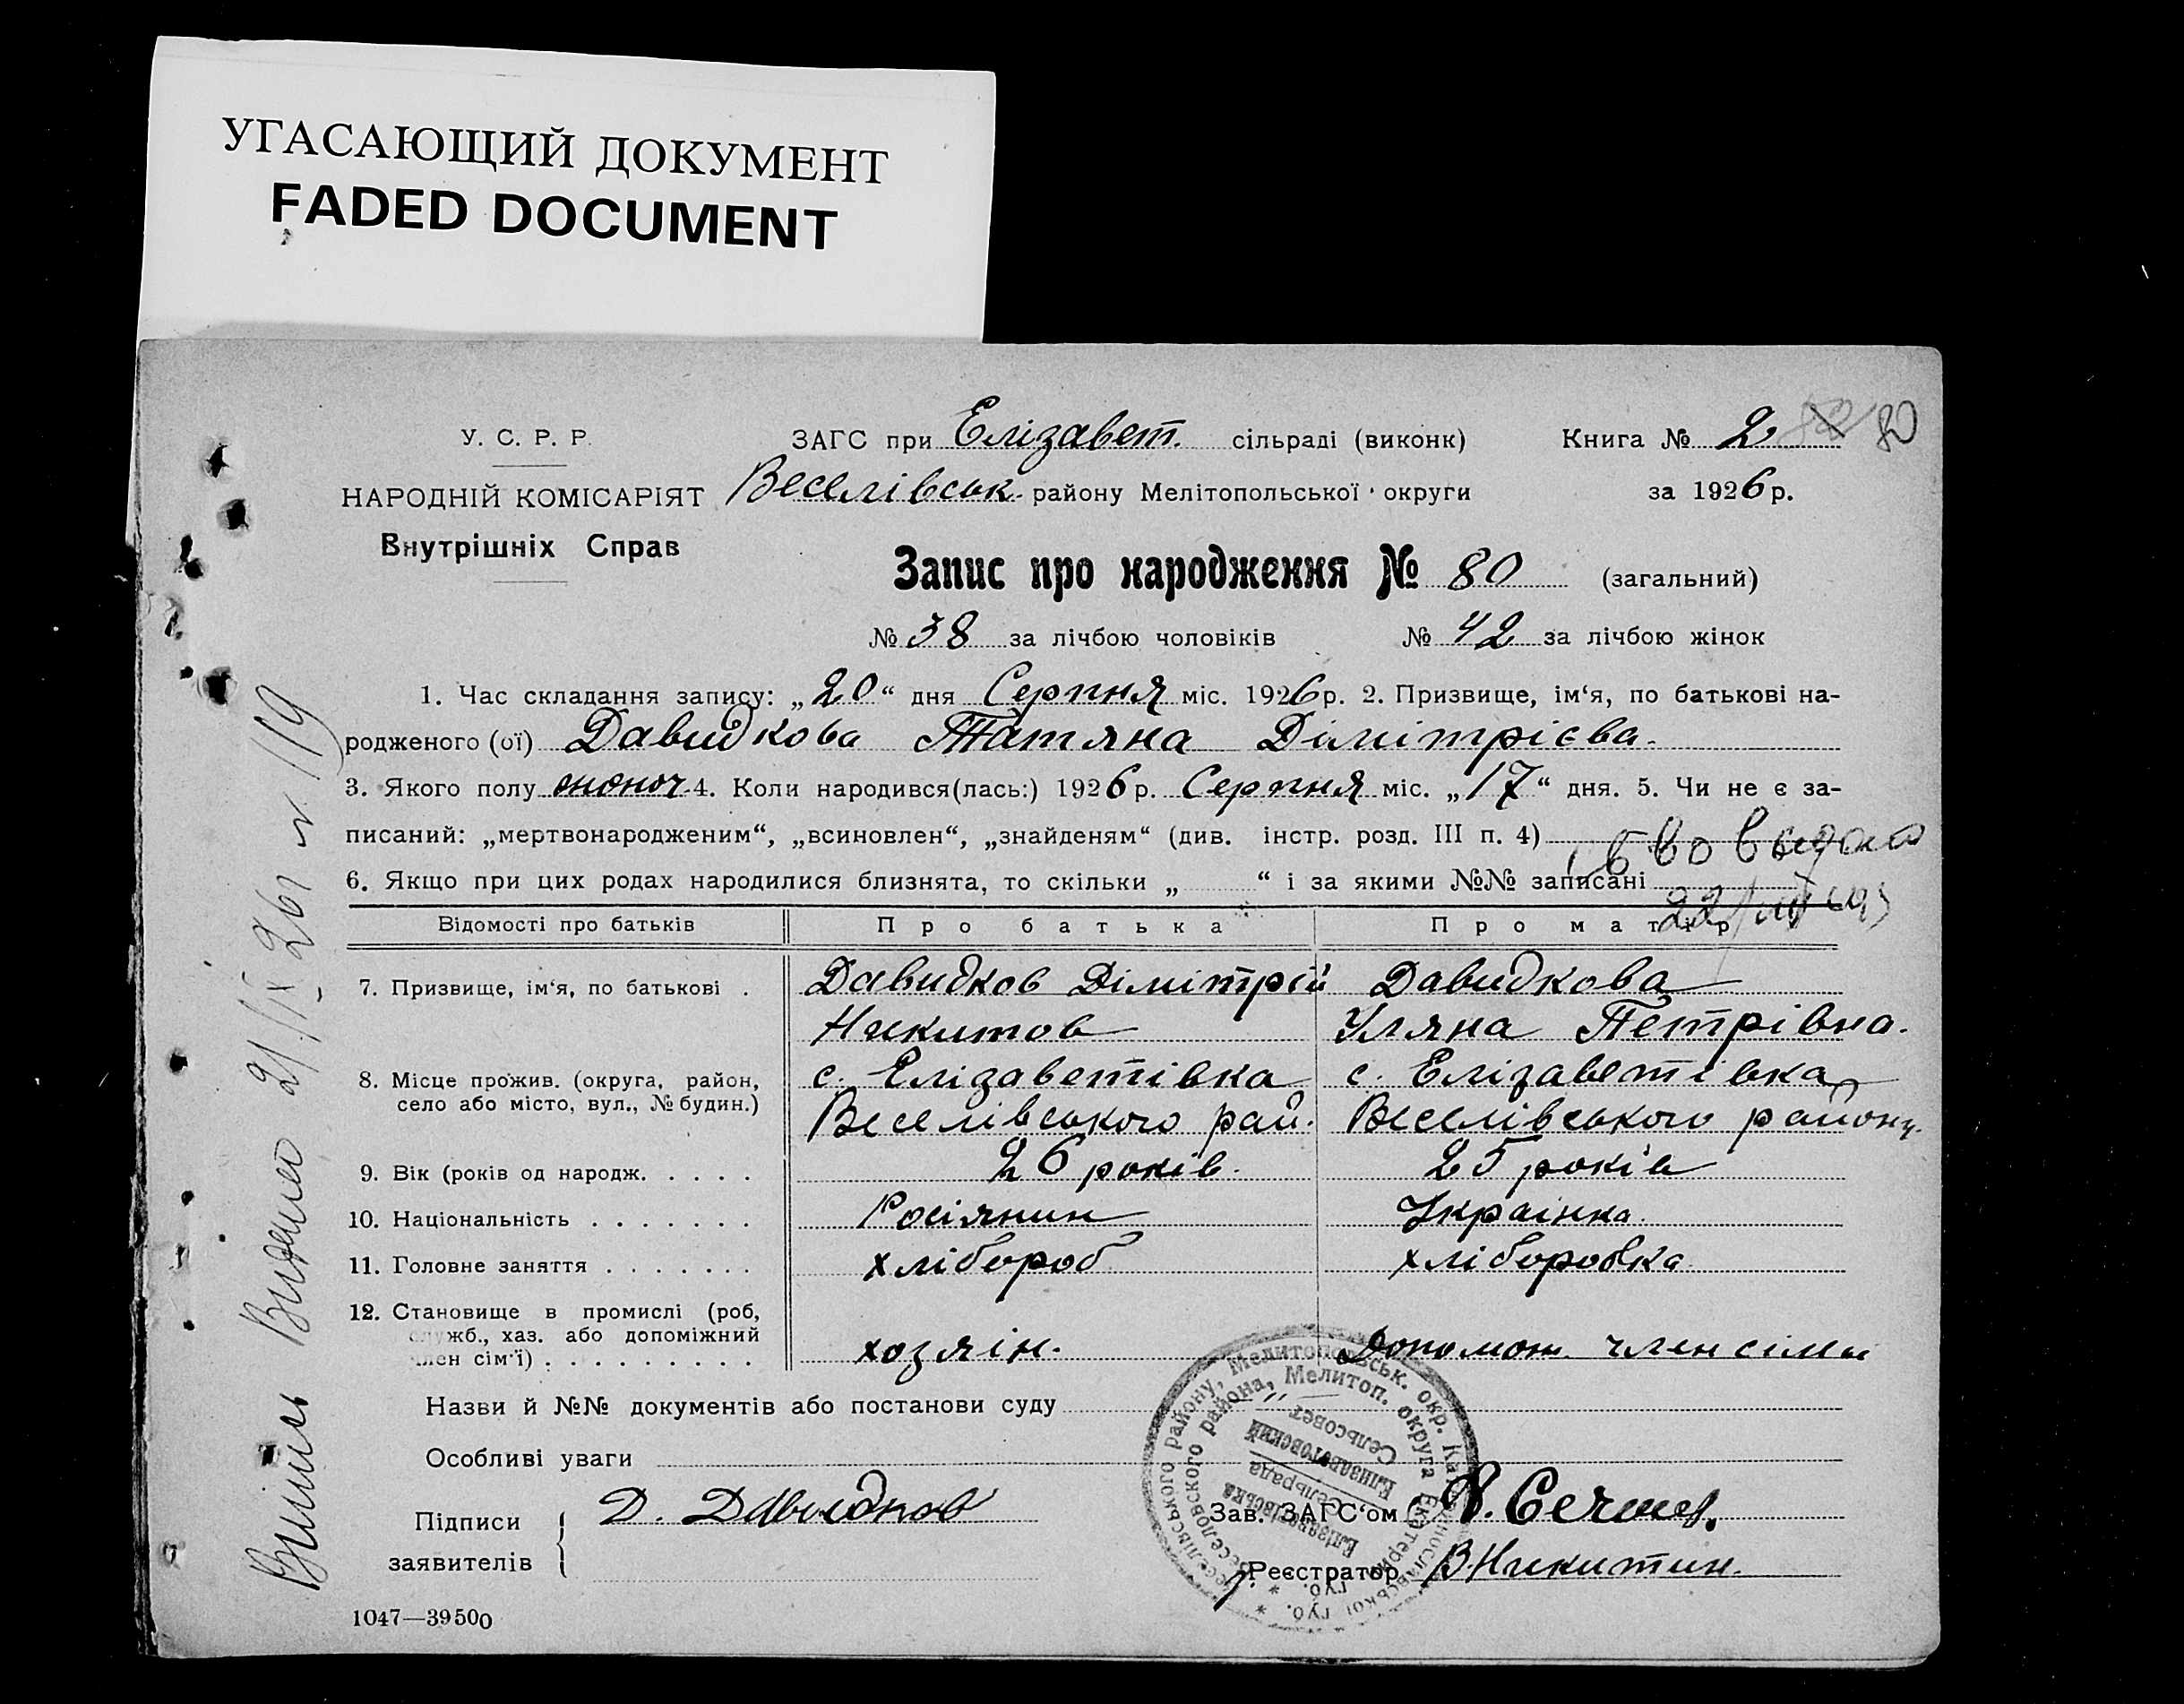 УГАСАЮЩИЙ ДОКУМЕНТ
FADED DOCUMENT
У. С. Р. Р.
НАРОДНІЙ КОМІСАРІЯТ
Внутрішніх Справ
ЗАГС при Елізавет. сільраді (виконк)
Веселівськ. району Мелітопольської округи
Книга № 2 80
за 1926 р.
Запис про народження № 80 (загальний)
№ 38 за лічбою чоловіків № 42 за лічбою жінок
1. Час складання запису: „20“ дня Серпня міс. 1926 р. 2. Призвище, ім‘я, по батькові на-
родженого (ої) Давидкова Татяна Дімітрієва.
3. Якого полу жіноч. 4. Коли народився(лась:) 1926 р. Серпня міс. „17“ дня. 5. Чи не є за-
писаний: „мертвонародженим“, „всиновлен“, „знайденям“ (див. інстр. розд. III п. 4)
6. Якщо при цих родах народилися близнята, то скільки „ “ і за якими №№ записані
Відомості про батьків Про батька Про матір
7. Призвище, ім‘я, по батькові . Давидков Дімітрій Давидкова
Никитов Уляна Петрівна.
8. Місце прожив. (округа, район, с. Елізаветівка с. Елізаветівка
село або місто, вул., № будин.) Веселівського рай. Веселівського району.
9. Вік (років од народж. . . . . 26 років. 25 років
10. Національність . . . . . . . Росіянин Українка.
11. Головне заняття . . . . . . . хлібороб хлiборобка
12. Становище в промислі (роб,
служб., хаз. або допоміжний
член сім‘ї) . . . . . . . . . хозяін. Допомож. член сімьи
Назви й №№ документів або постанови суду
Особливі уваги
Підписи
заявителів
Д. Давыдков
Зав. ЗАГС‘ом
Реєстратор В. Никитин.
1047—39500
Випись Видана 21/IX 26 г № 119
Веселівського району, Мелитопольськ. окр. Катеринославської губ.
Веселовского района, Мелитоп. округа Екатерин. губ.
Єлізаветівська
Сельрада
Елизаветовский
Сельсовет